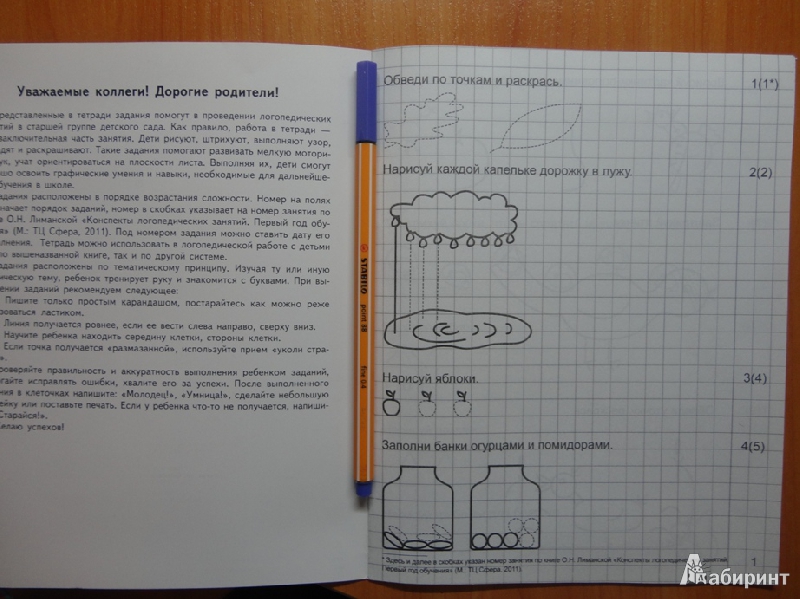 Уважаемые коллеги! Дорогие родители!
редставленные в тетради задания помогут в проведении логопедических
тий в старшей группе детского сада. Как правило, работа в тетради —
аключительная часть занятия. Дети рисуют, штрихуют, выполняют узор,
дят и раскрашивают. Такие задания помогают развивать мелкую мотори-
ук, учат ориентироваться на плоскости листа. Выполняя их, дети смогут
шо освоить графические умения и навыки, необходимые для дальнейше-
бучения в школе.
адания расположены в порядке возрастания сложности. Номер на полях
начает порядок заданий, номер в скобках указывает на номер занятия по
О.Н. Лиманской «Конспекты логопедических занятий. Первый год обу-
я» (М.: ТЦ Сфера, 2011). Под номером задания можно ставить дату его
лнения. Тетрадь можно использовать в логопедической работе с детьми
по вышеназванной книге, так и по другой системе.
адания расположены по тематическому принципу. Изучая ту или иную
ческую тему, ребенок тренирует руку и знакомится с буквами. При вы-
ении заданий рекомендуем следующее:
Пишите только простым карандашом, постарайтесь как можно реже
зоваться ластиком.
Линия получается ровнее, если ее вести слева направо, сверху вниз.
Научите ребенка находить середину клетки, стороны клетки.
Если точка получается «размазанной», используйте прием «уколи стра-
».
роверяйте правильность и аккуратность выполнения ребенком заданий,
огайте исправлять ошибки, хвалите его за успехи. После выполненного
ния в клеточках напишите: «Молодец!», «Умница!», сделайте небольшую
ейку или поставьте печать. Если у ребенка что-то не получается, напиши-
Старайся!».
елаю успехов!
STABILO point 88 fine 0,4
Обведи по точкам и раскрась. 1(1*)
Нарисуй каждой капельке дорожку в лужу. 2(2)
Нарисуй яблоки. 3(4)
Заполни банки огурцами и помидорами. 4(5)
* Здесь и далее в скобках указан номер занятия по книге О.Н. Лиманской «Конспекты логопедических занятий
Первый год обучения» (М.: ТЦ Сфера, 2011).
1
Лабиринт